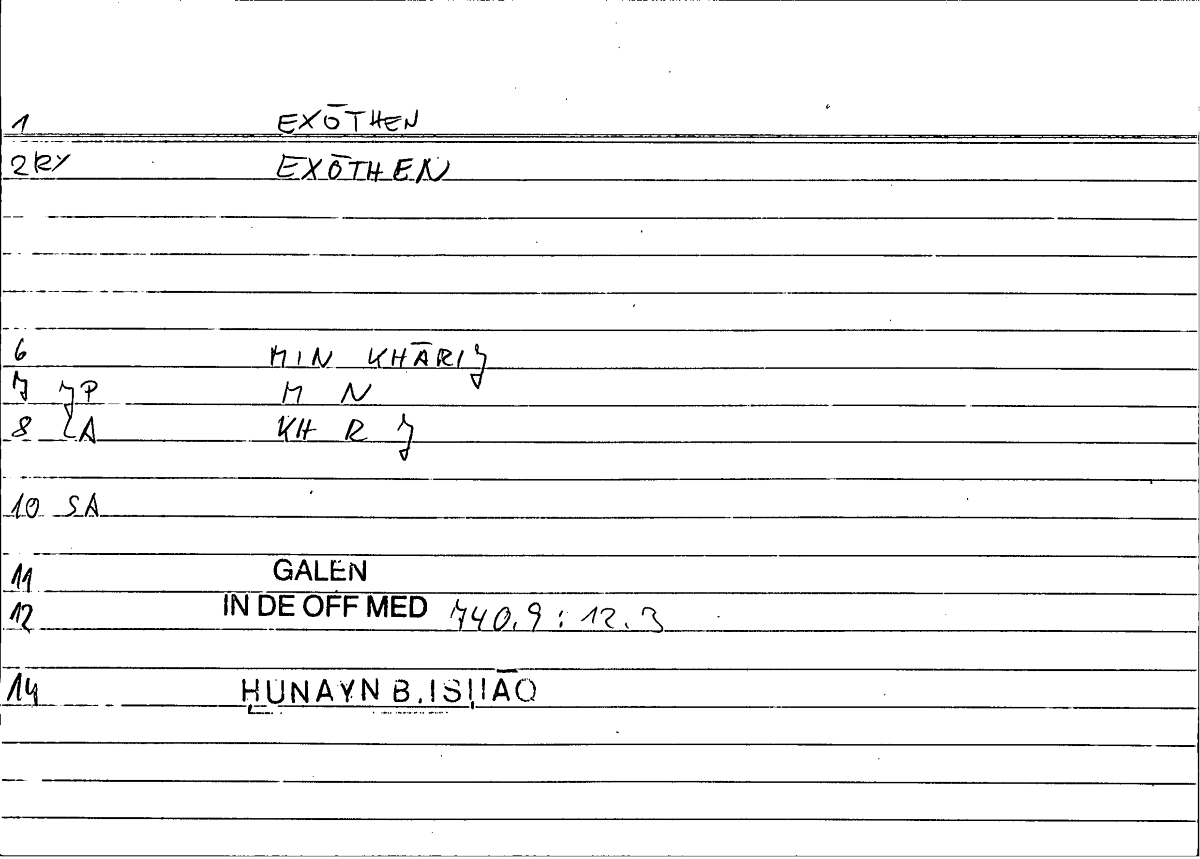 1 EXŌTHEN
2RY EXŌTHEN
6 MIN KHĀRIJ
7 JP M N
8 LA KH R J
10 SA
11 GALEN
12 IN DE OFF MED 740.9 : 12.3
14 ḤUNAYN B. ISḤĀQ